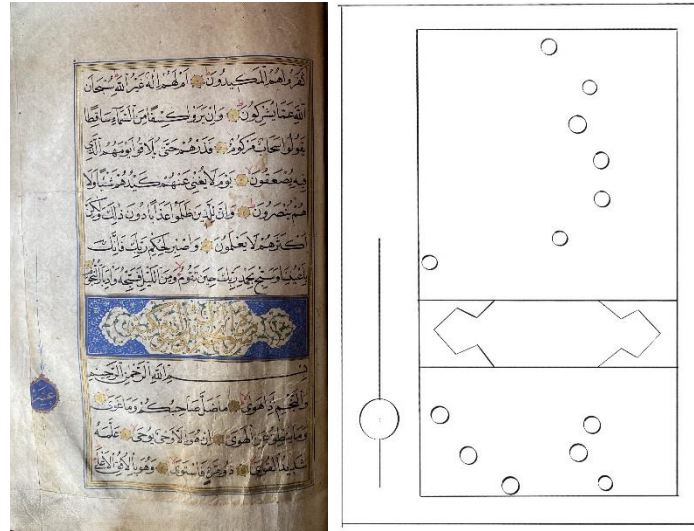 كَفَرُوا هُمُ الْمَكِيدُونَ أَمْ لَهُمْ إِلَهٌ غَيْرُ اللَّهِ سُبْحَانَ
اللَّهِ عَمَّا يُشْرِكُونَ وَإِنْ يَرَوْا كِسْفًا مِنَ السَّمَاءِ سَاقِطًا
يَقُولُوا سَحَابٌ مَرْكُومٌ فَذَرْهُمْ حَتَّى يُلَاقُوا يَوْمَهُمُ الَّذِي
فِيهِ يُصْعَقُونَ يَوْمَ لَا يُغْنِي عَنْهُمْ كَيْدُهُمْ شَيْئًا وَلَا
هُمْ يُنْصَرُونَ وَإِنَّ لِلَّذِينَ ظَلَمُوا عَذَابًا دُونَ ذَلِكَ وَلَكِنَّ
أَكْثَرَهُمْ لَا يَعْلَمُونَ وَاصْبِرْ لِحُكْمِ رَبِّكَ فَإِنَّكَ
بِأَعْيُنِنَا وَسَبِّحْ بِحَمْدِ رَبِّكَ حِينَ تَقُومُ وَمِنَ اللَّيْلِ فَسَبِّحْهُ وَإِدْبَارَ النُّجُومِ
بِسْمِ اللَّهِ الرَّحْمَنِ الرَّحِيمِ
وَالنَّجْمِ إِذَا هَوَى مَا ضَلَّ صَاحِبُكُمْ وَمَا غَوَى
وَمَا يَنْطِقُ عَنِ الْهَوَى إِنْ هُوَ إِلَّا وَحْيٌ يُوحَى عَلَّمَهُ
شَدِيدُ الْقُوَى ذُو مِرَّةٍ فَاسْتَوَى وَهُوَ بِالْأُفُقِ الْأَعْلَى
عشر